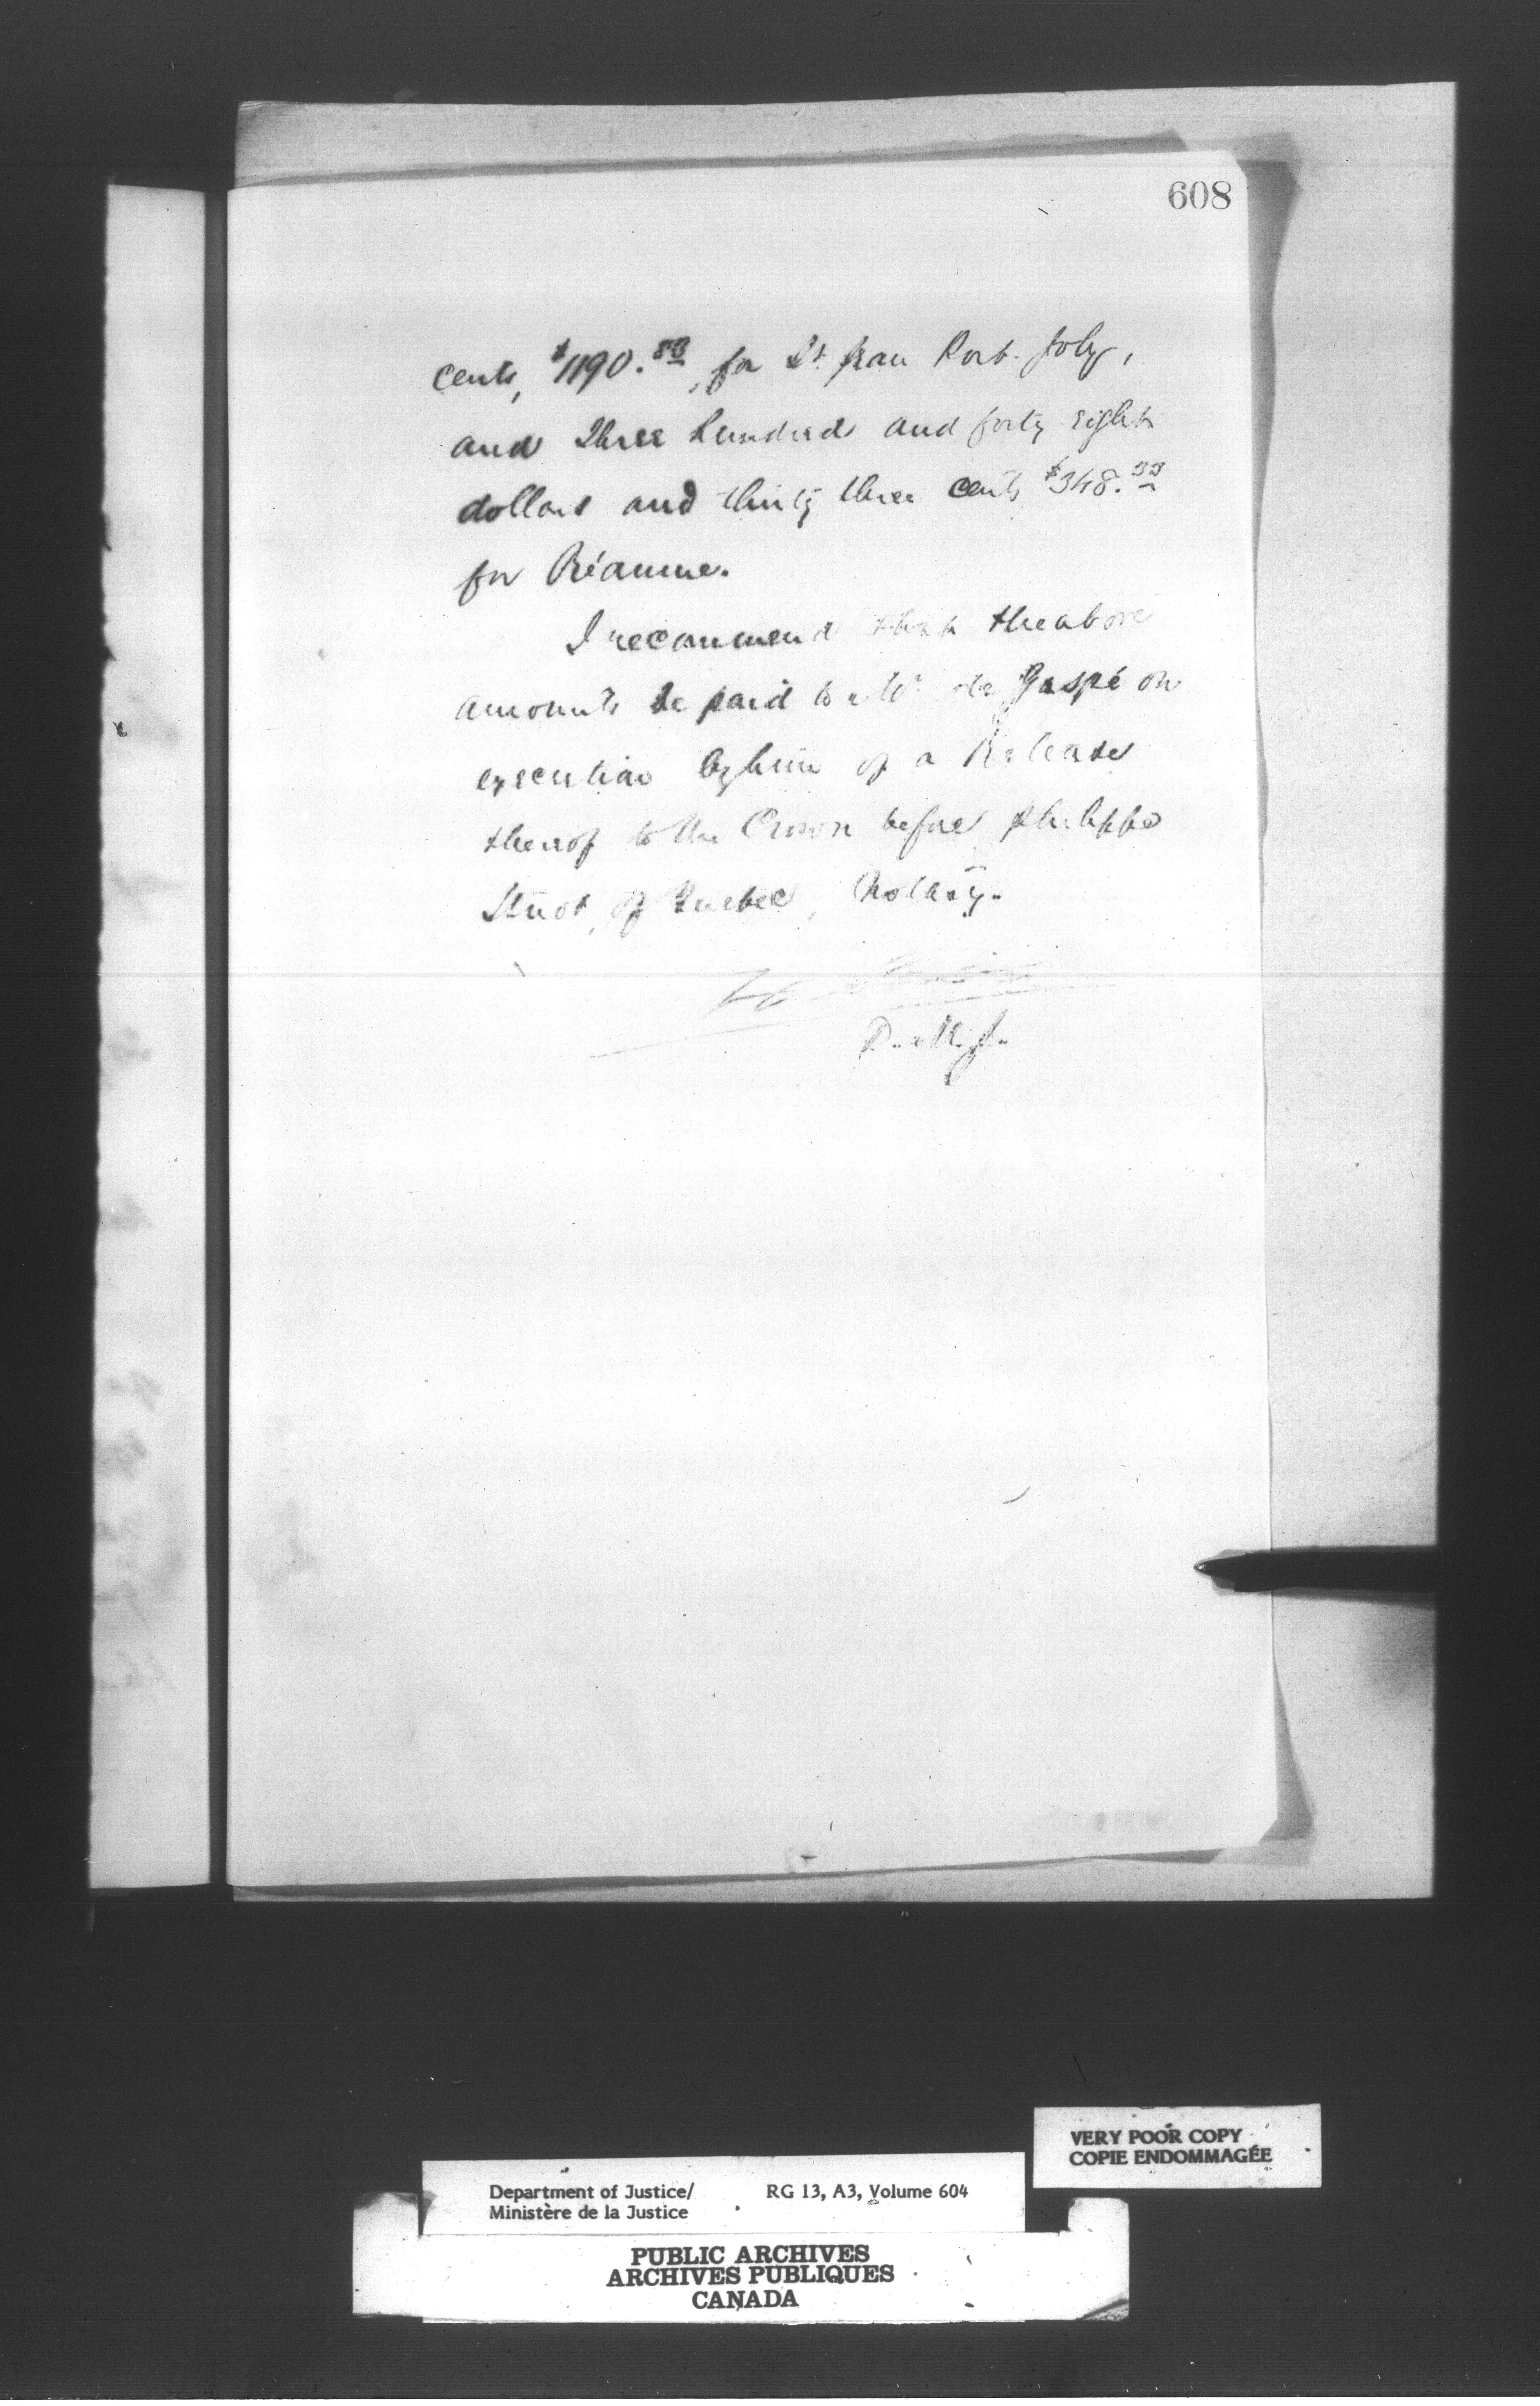 608
cents, $1190.83, for St. Jean Port-Joly,
and Three hundred and forty eight
dollars and thirty three cents $348.33
for Réaume.
I recommend that the above
amounts be paid to Mr. de Gaspé on
execution by him of a Release
thereof to the Crown before Philippe
Huot, of Quebec, Notary.
D. M. J.
VERY POOR COPY
COPIE ENDOMMAGÉE
Department of Justice/ RG 13, A3, Volume 604
Ministère de la Justice
PUBLIC ARCHIVES
ARCHIVES PUBLIQUES
CANADA